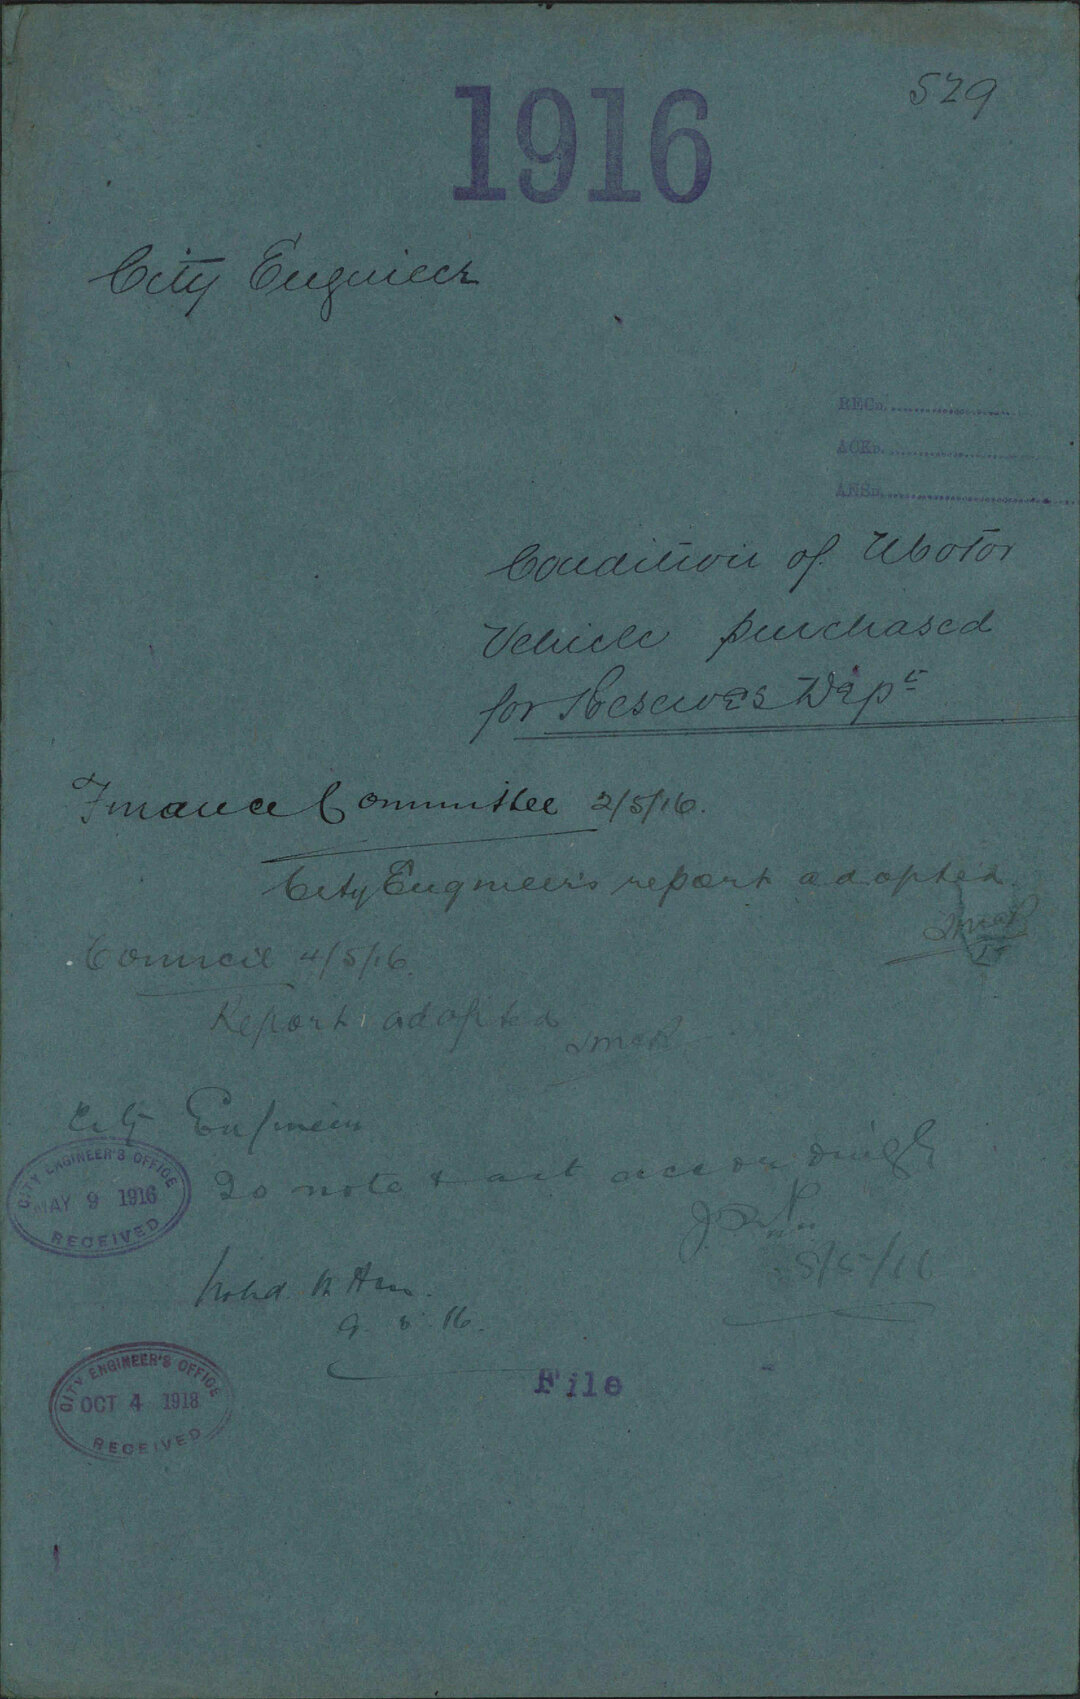 1916
529
City Engineer
RECD.
ACKD.
ANSD.
Condition of Motor
Vehicle purchased
for Reserves Dept
Finance Committee 2/5/16.
City Engineer's report adopted.
Council 4/5/16.
Report adopted
City Engineer
To note & act accordingly
CITY ENGINEER'S OFFICE
MAY 9 1916
RECEIVED
8/5/16
Noted
9.5.16.
File
CITY ENGINEER'S OFFICE
OCT 4 1918
RECEIVED